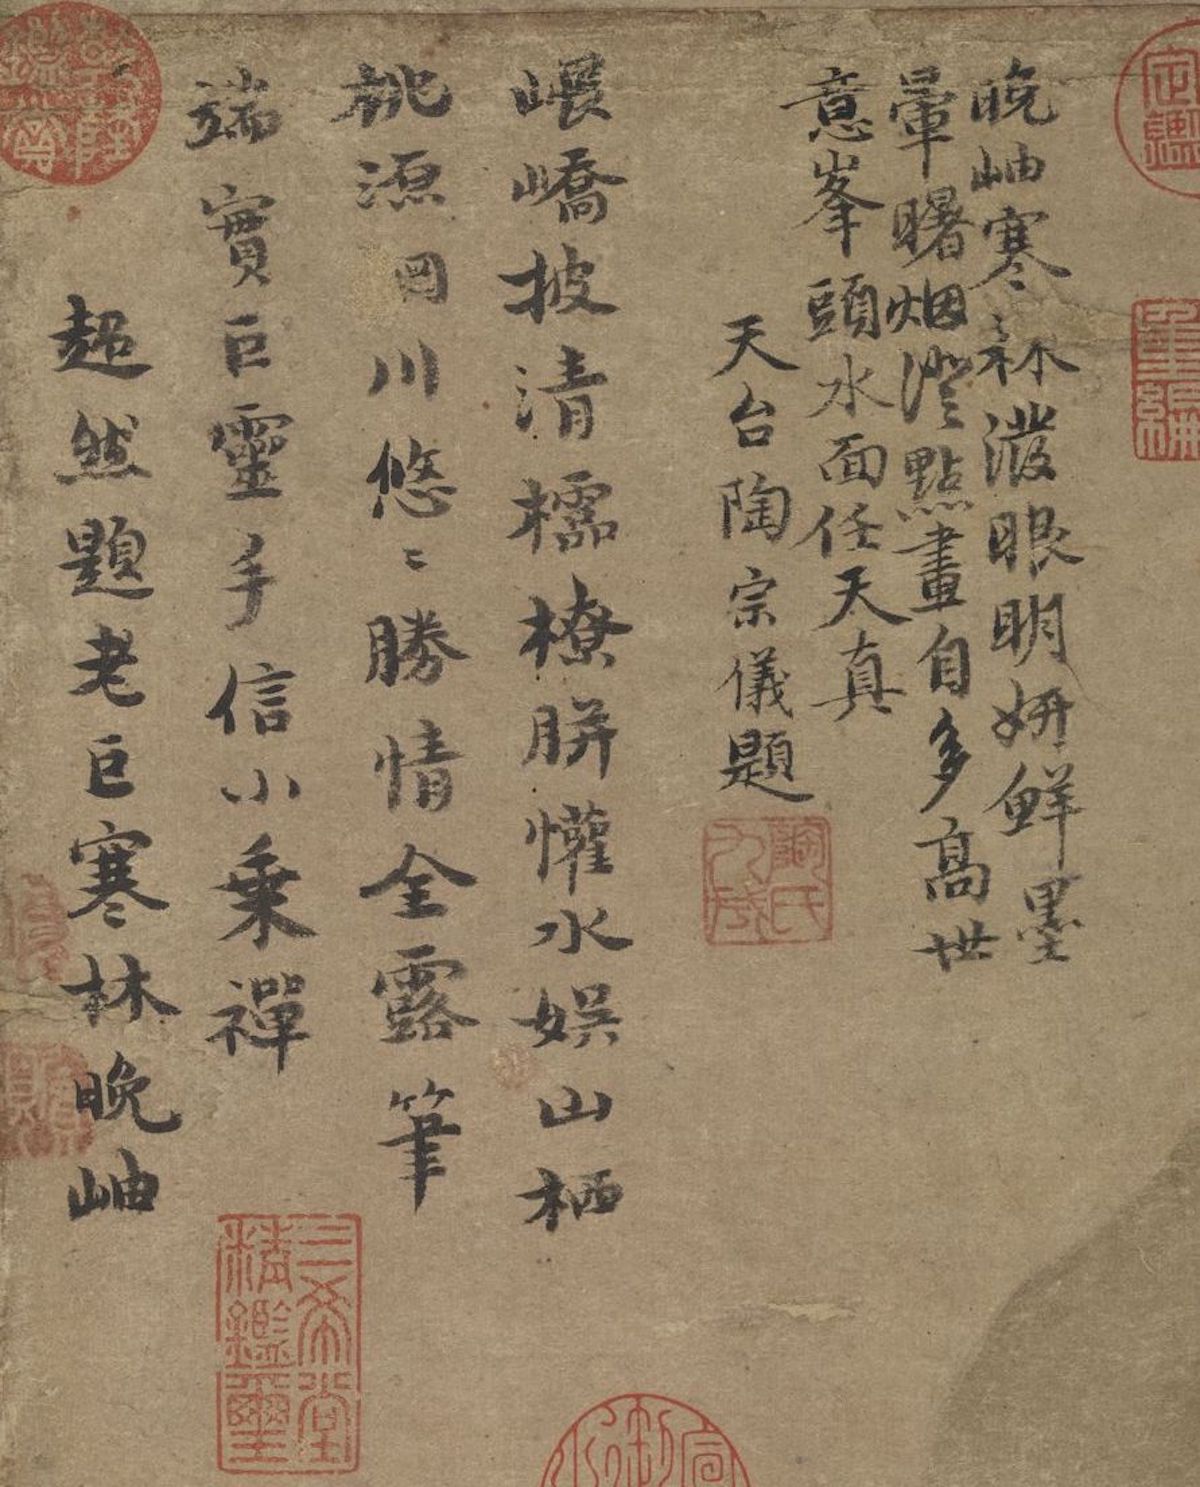 晚岫寒林潑眼明妍鮮墨
暈曙烟澄點畫自多高世
意峯頭水面任天真
天台陶宗儀題
陶氏九成
嵔嶠披清檽橑胼懽水娛山栖
桃源罔川悠〻勝情全露筆
端實巨靈手信小乘禪
超然題老巨寒林晚岫
三希堂精鑑璽
定鑑
重編